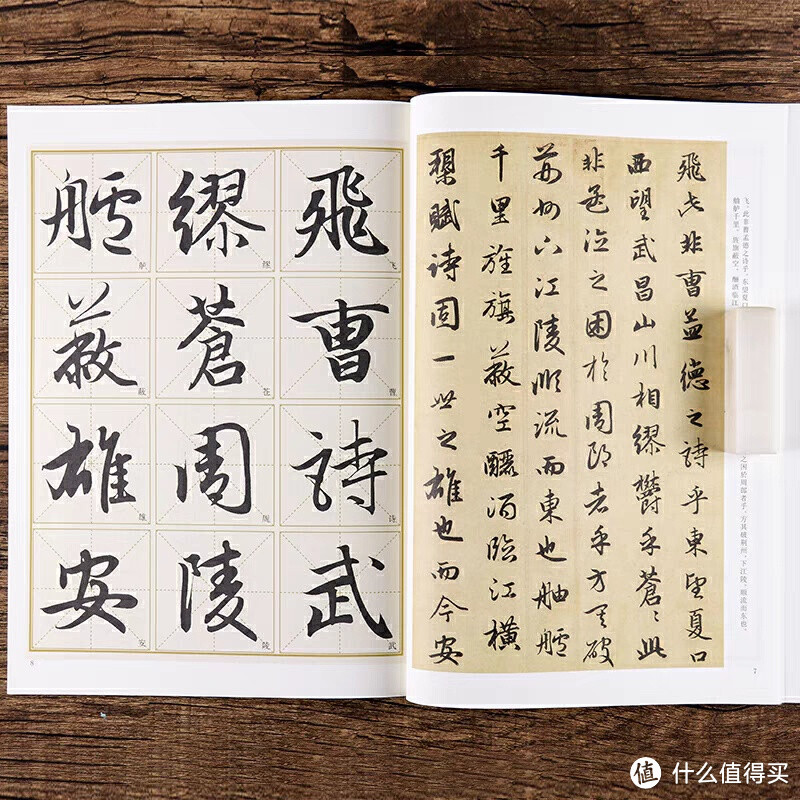 飛此非曹孟德之詩乎東望夏口
西望武昌山川相繆欝乎蒼〻此
非孟德之困於周郎者乎方其破
荊州下江陵順流而東也舳艫
千里旌旗蔽空釃酒臨江橫
槊賦詩固一世之雄也而今安
飞、此非曹孟德之诗乎、东望夏口
之困於周郎者乎、方其破荆州、下江陵、顺流而东也、
舳舻千里、旌旗蔽空、酾酒临江
7
飛曹詩武
飞曹诗武
繆蒼周陵
缪苍周陵
艫蔽雄安
舻蔽雄安
8
值 什么值得买